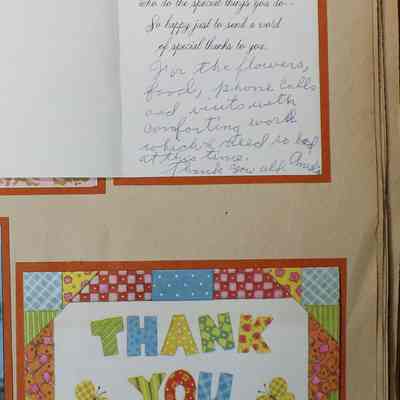 who do the special things you do --
So happy just to send a word
of special thanks to you.
For the flowers,
food, phone calls
and visits with
comforting words
which I need so bad
at this time.
Thank you all.
THANK
YOU